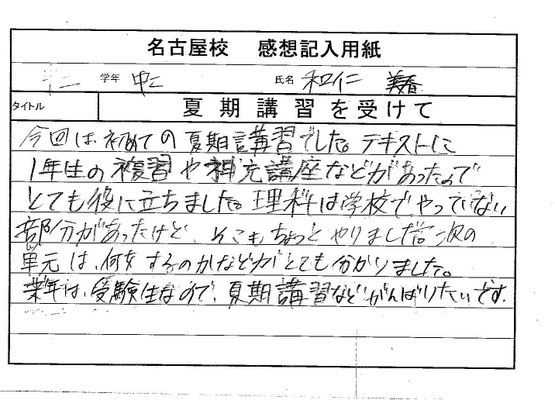 名古屋校 感想記入用紙
学年 中二 氏名 和仁
タイトル 夏期講習を受けて
今回は、初めての夏期講習でした。テキストに
1年生の複習や補充講座などがあったので
とても役に立ちました。理科は学校でやっていない
部分があったけど、そこもちょっとやりました。次の
単元は、何をするのかなどがとても分かりました。
来年は、受験生なので、夏期講習などがんばりたいです。